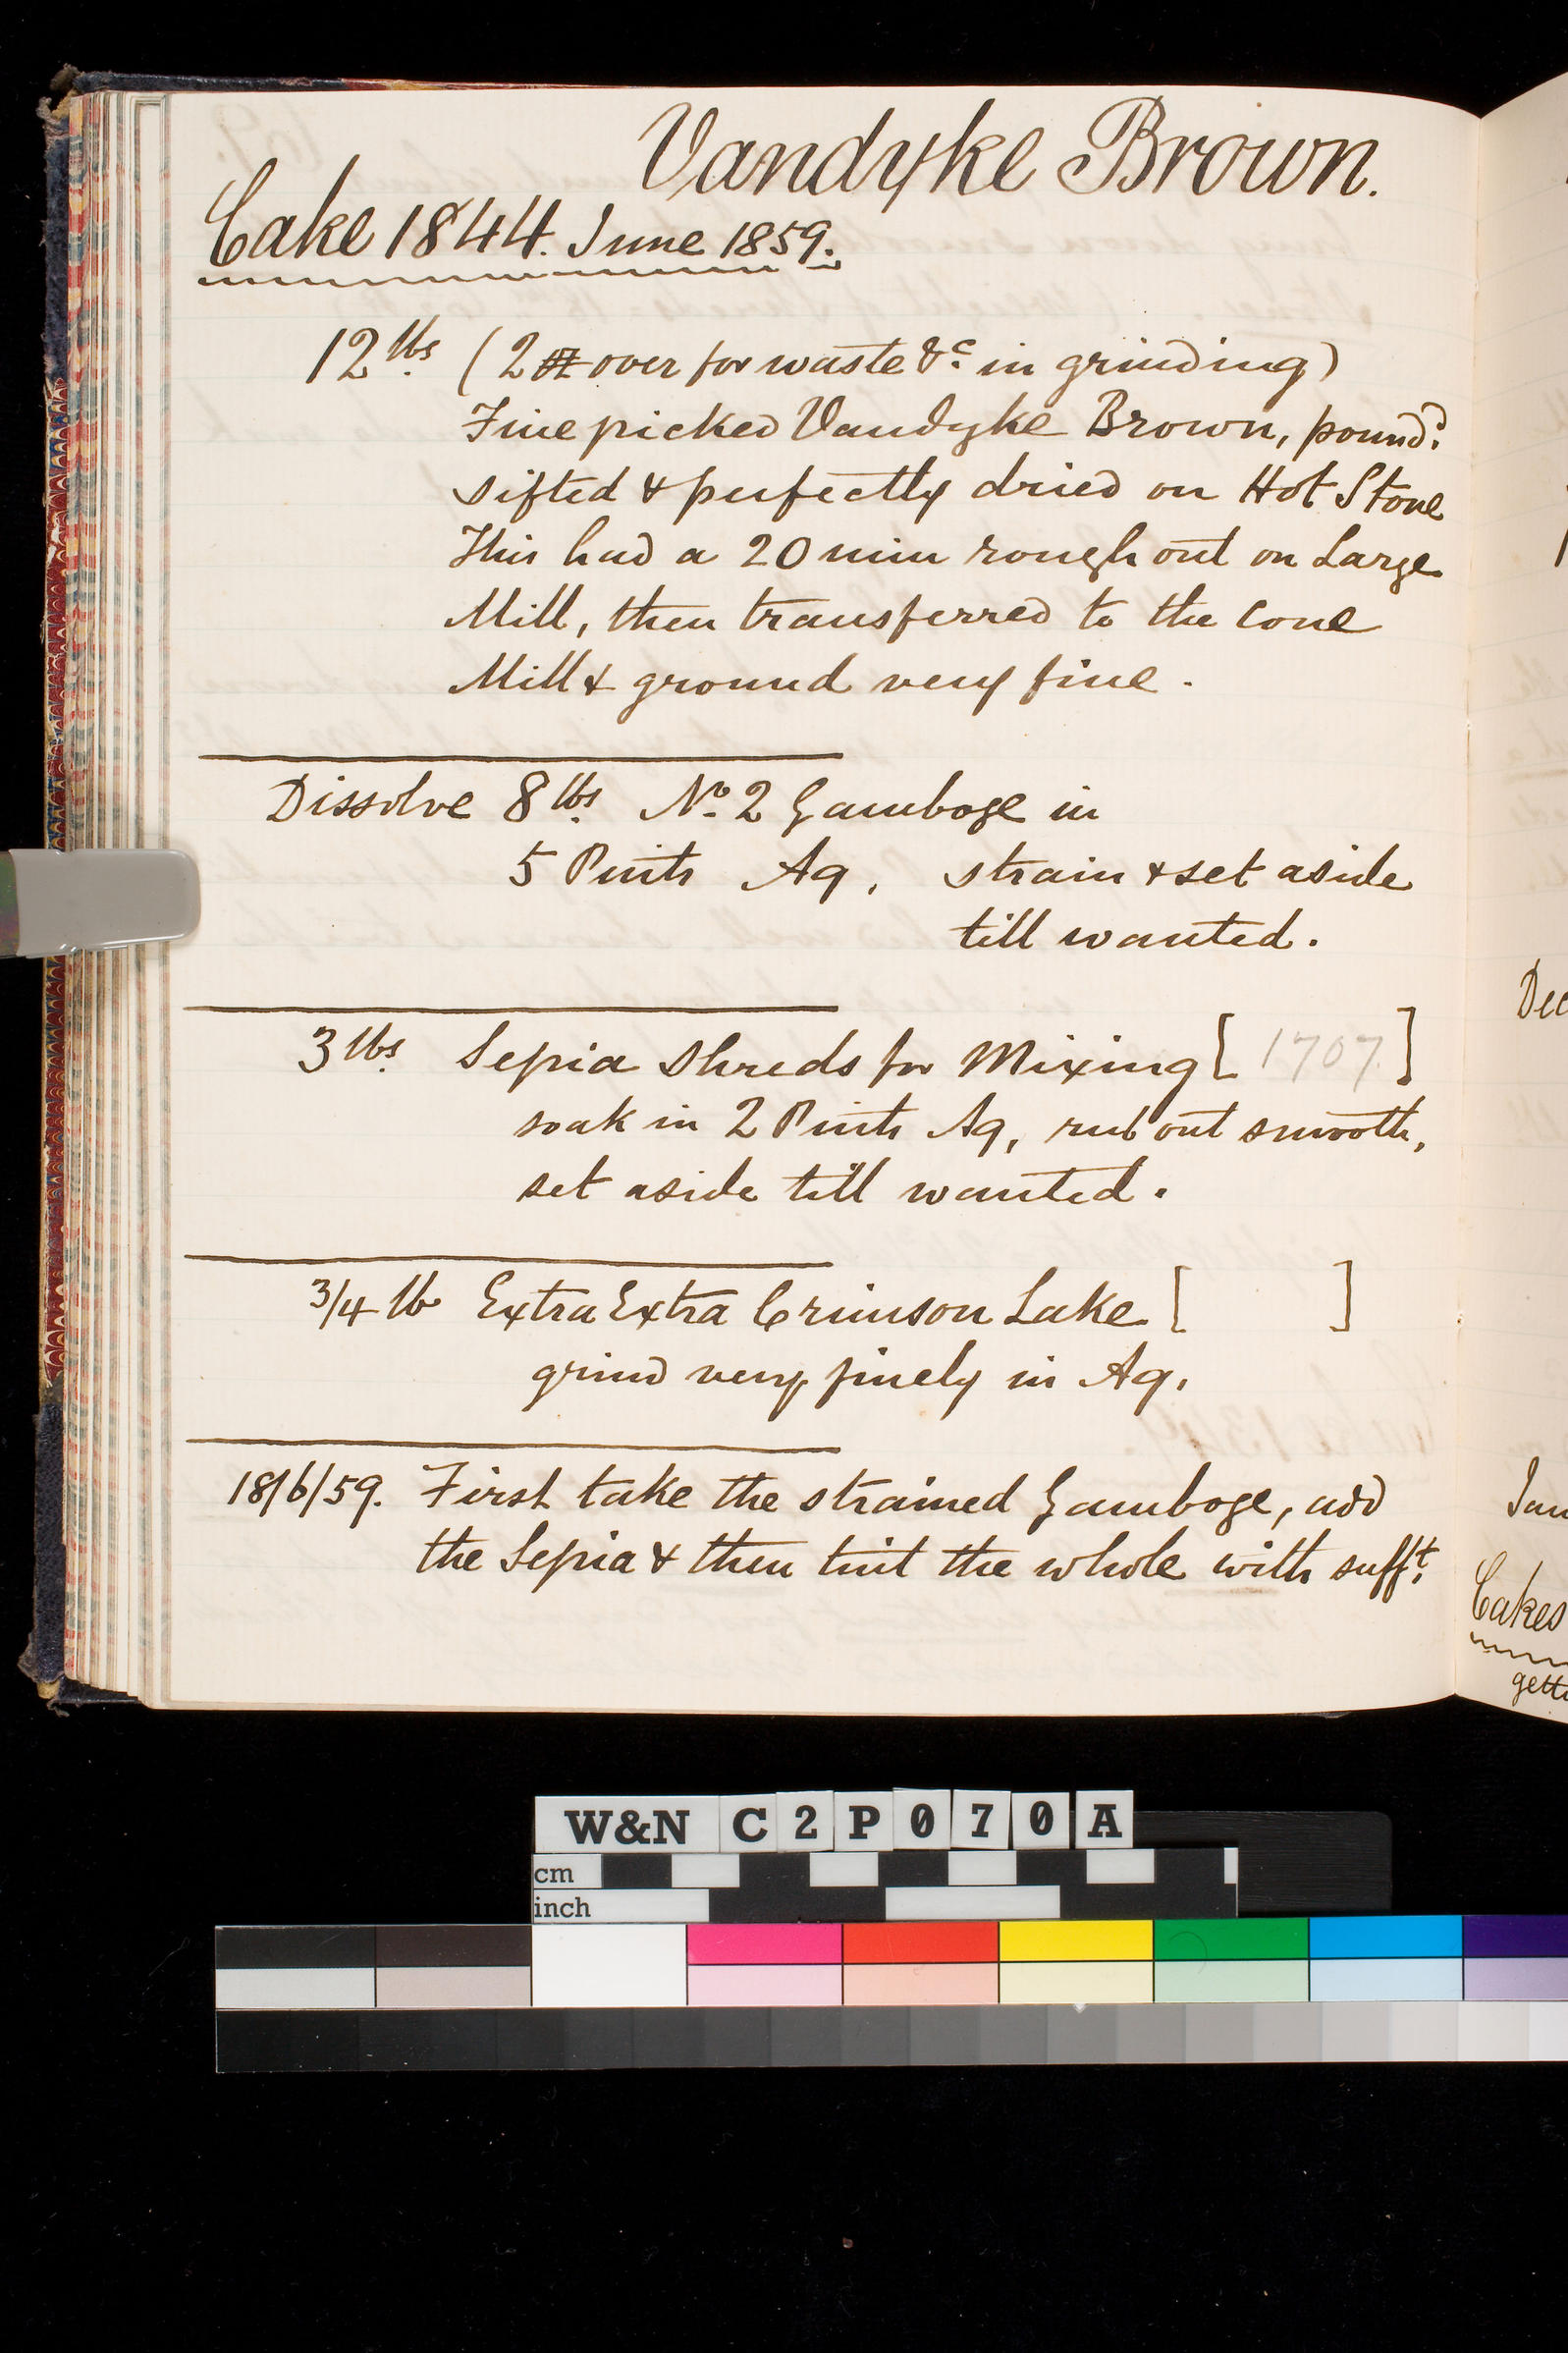 Vandyke Brown.
Cake 1844. June 1859.
12 lbs. (2 oz over for waste &c. in grinding)
Fine picked Vandyke Brown, pound.d
sifted & perfectly dried on Hot Stone
This had a 20 min rough out on Large
Mill, then transferred to the Cone
Mill & ground very fine.
Dissolve 8 lbs. No. 2 Gamboge in
5 Pints Aq, strain & set aside
till wanted.
3 lbs. Sepia Shreds for Mixing [1707.]
soak in 2 Pints Aq, rub out smooth,
set aside till wanted.
3/4 lb Extra Extra Crimson Lake [ ]
grind very finely in Aq.
18/6/59. First take the strained Gamboge, add
the Sepia & then tint the whole with suff.t
Dec
Jan
Cakes
gett
W&N C2P070A
cm
inch